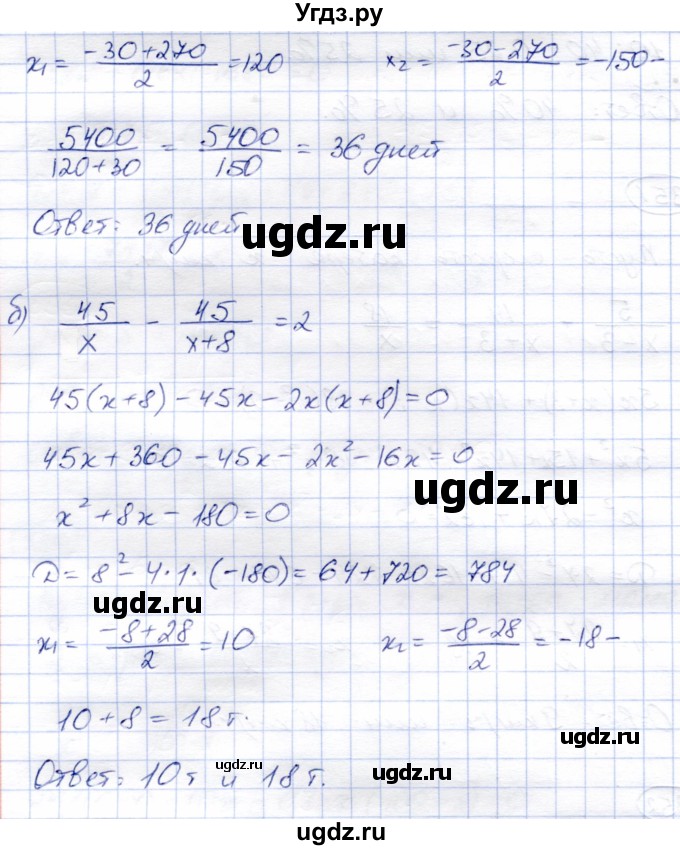 Угдз.ру
x₁ = (-30+270)/2 = 120    x₂ = (-30-270)/2 = -150 -
5400/(120+30) = 5400/150 = 36 дней
Ответ: 36 дней
ugdz.ru
б) 45/x - 45/(x+8) = 2
45(x+8) - 45x - 2x(x+8) = 0
45x + 360 - 45x - 2x² - 16x = 0
ugdz.ru
x² + 8x - 180 = 0
D = 8² - 4·1·(-180) = 64 + 720 = 784
ugdz.ru
x₁ = (-8+28)/2 = 10    x₂ = (-8-28)/2 = -18 -
10 + 8 = 18 т.
ugdz.ru
Ответ: 10 т и 18 т.
ugdz.ru
ugdz.ru
ugdz.ru